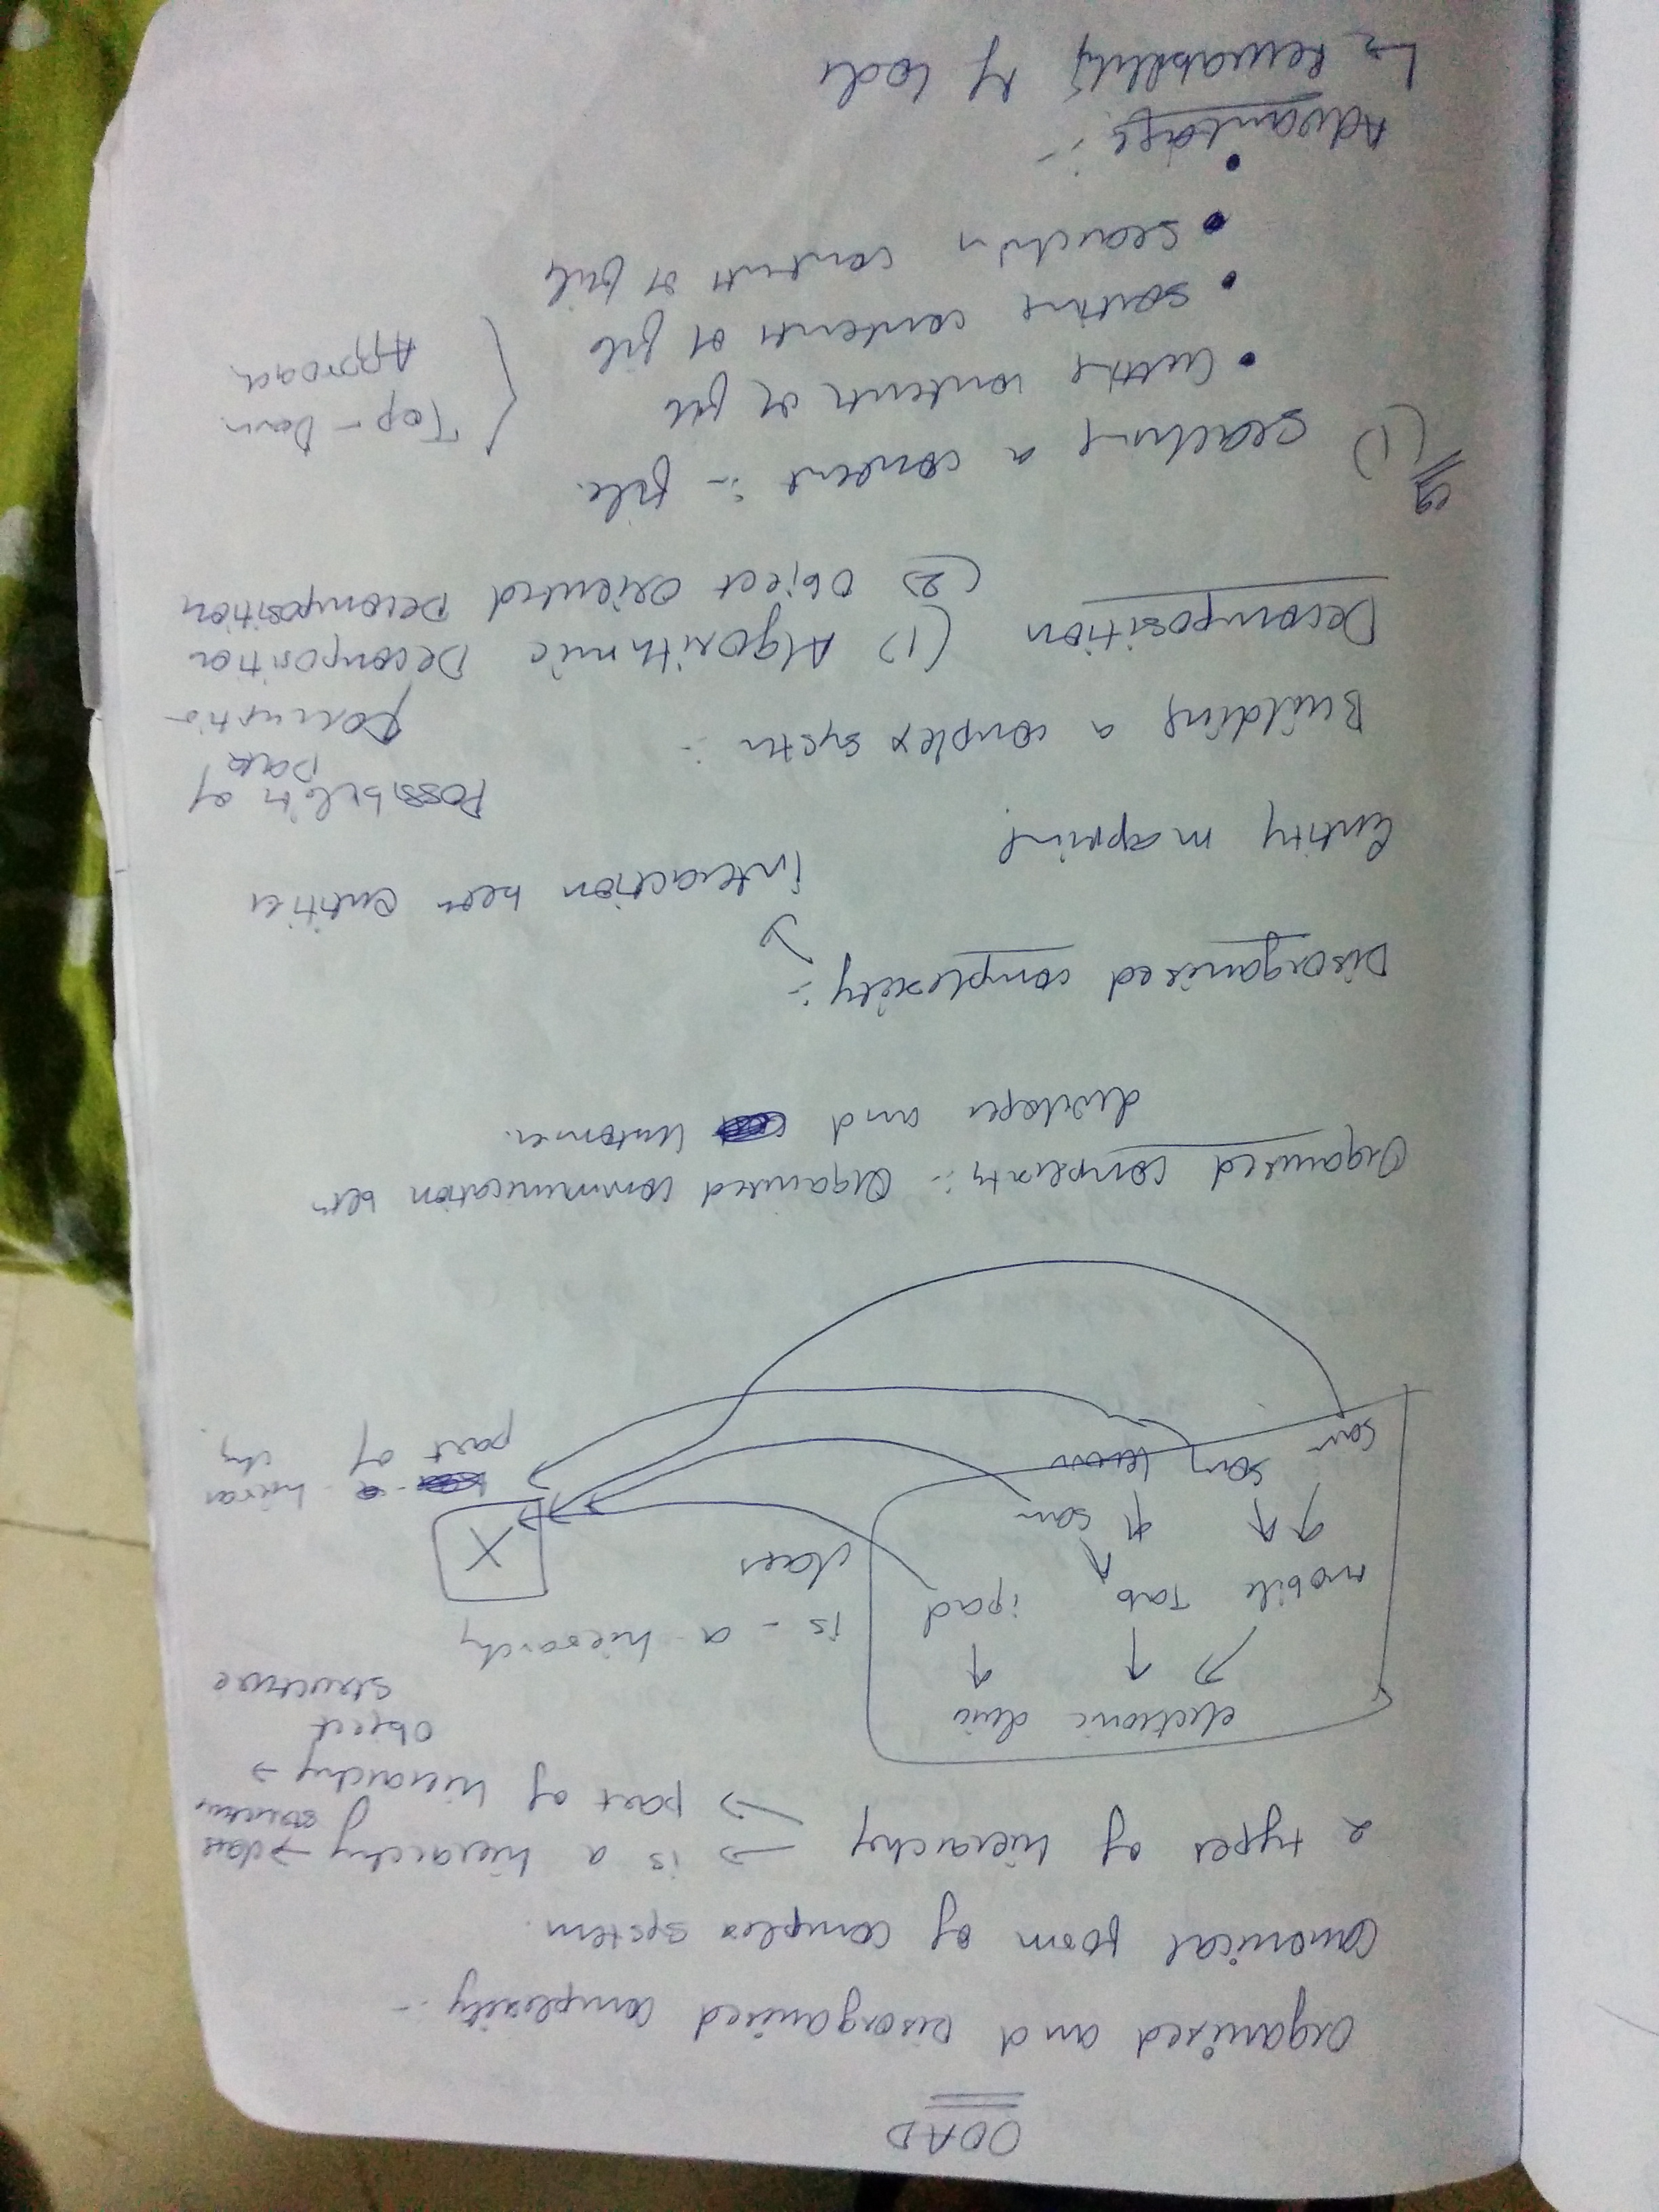 OOAD
Organised and Disorganised complexity :-
Canonical form of complex system.
2 types of hierarchy → is a hierarchy → class structure
→ part of hierarchy → object structure
electronic
mobile Tab ipad
is - a - hierarchy
class
X
Sam Sony Sam
hierar
chy
part of
Organised complexity :- Organised communication
and
Disorganised complexity :-
interaction between entities
Entity mapping
Possibility of
Building a complex system :-
Decomposition (1) Algorithmic Decomposition
(2) Object oriented Decomposition
eg (1) Searching a content :- file.
• contents of file
• sorting contents of file
• searching contents of file
Top - Down
Approach
•
Advantages :-
↳ Reusability of code